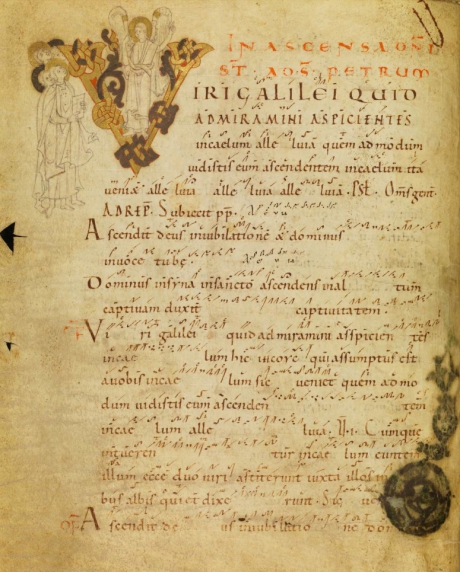 IN ASCENSA DNI
ST. AD S PETRUM
VIRI GALILEI QUID
ADMIRAMINI ASPICIENTES
incaelum alle luia quem ad modum
vidistis eum ascendentem incaelum ita
veniet alle luia alle luia alle luia. Psl. Oms gent.
AD REP. Subiecit pp.
Ascendit deus iniubilatione & dominus
invoce tube.
Dominus insyna insancto ascendens inal tum
captivam duxit captivitatem.
Viri galilei quid admiramini aspicien tes
incae lum hic incore qui assumptus est
avobis incae lum sic veniet quem ad mo
dum vidistis eum ascenden tem
incae lum alle luia. Cumque
intueren tur incae lum euntem
illum ecce duo viri astiterunt iuxta illos in
bus albis qui et dixe runt. Sic ve
Ascendit de us iniubilatio ne